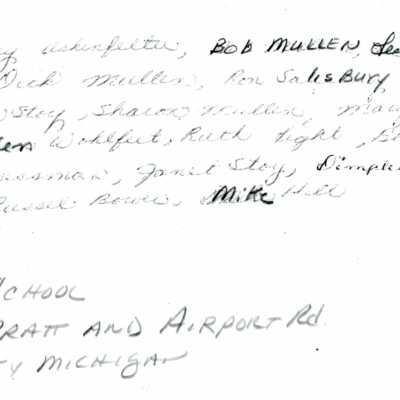 y Ashenfelter, BOB MULLEN,
Dick Mullen, Ron SalisBury
Stoy, Sharon Mullen, Mary
en Wohlfert, Ruth Tight, B
ussman, Janet Stoy, Dimple
Russel Bower, Mike Hill
SCHOOL
PRATT AND AIRPORT Rd.
TY MICHIGAN